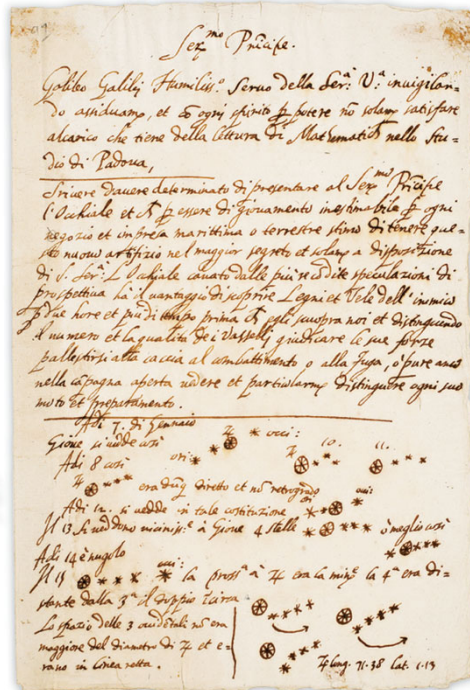 Ser.mo Prīcipe.
Galileo Galilej Humiliss.o Servo della Ser.a V.a invigilan-
do assiduam.te, et cō ogni spirito p potere nō solam. satisfare
alcarico che tiene della lettura di Mathematic. nello Stu-
dio di Padova,
Scrivere davere determinato di presentare al Ser.mo Prīcipe
l'Occhiale et p essere di giovamento inestimabile p ogni
negozio et impresa marittima o terrestre stimo di tenere que-
sto nuovo artifizio nel maggior segreto et solam. a disposizione
di S. Ser.a L'Occhiale cavato dalle più recōdite speculazioni di
prospettiva ha il vantaggio di scoprire Legni et Vele dell'inimico
p due hore et più di tempo prima egli scuopra noi et distinguendo
il numero et la qualità dei Vasselli giudicare le sue forze
pallestirsi alla caccia al combattimento o alla fuga, o pure anco
nella cāpagna aperta vedere et particularm. distinguere ogni suo
moto et preparamento.
Adi 7. di Gennaio
Giove si vedde così
occi:
Adi 8 così
ori:
10. 11.
era dūq diretto et nō retrogrado
Adi 12. si vedde in tale costituzione
Il 13 si veddono vicinis.e à Giove 4 stelle ò meglio così
Adi 14 è nugolo
Il 15
la pross.a à ♃ era la min.e la 4.a era di-
stante dalla 3.a il doppio circa
Lo spazio delle 3 occidētali nō era
maggiore del diametro di ♃ et e-
rano in linea retta.
♃ long. 71.38 Lat. 1.13